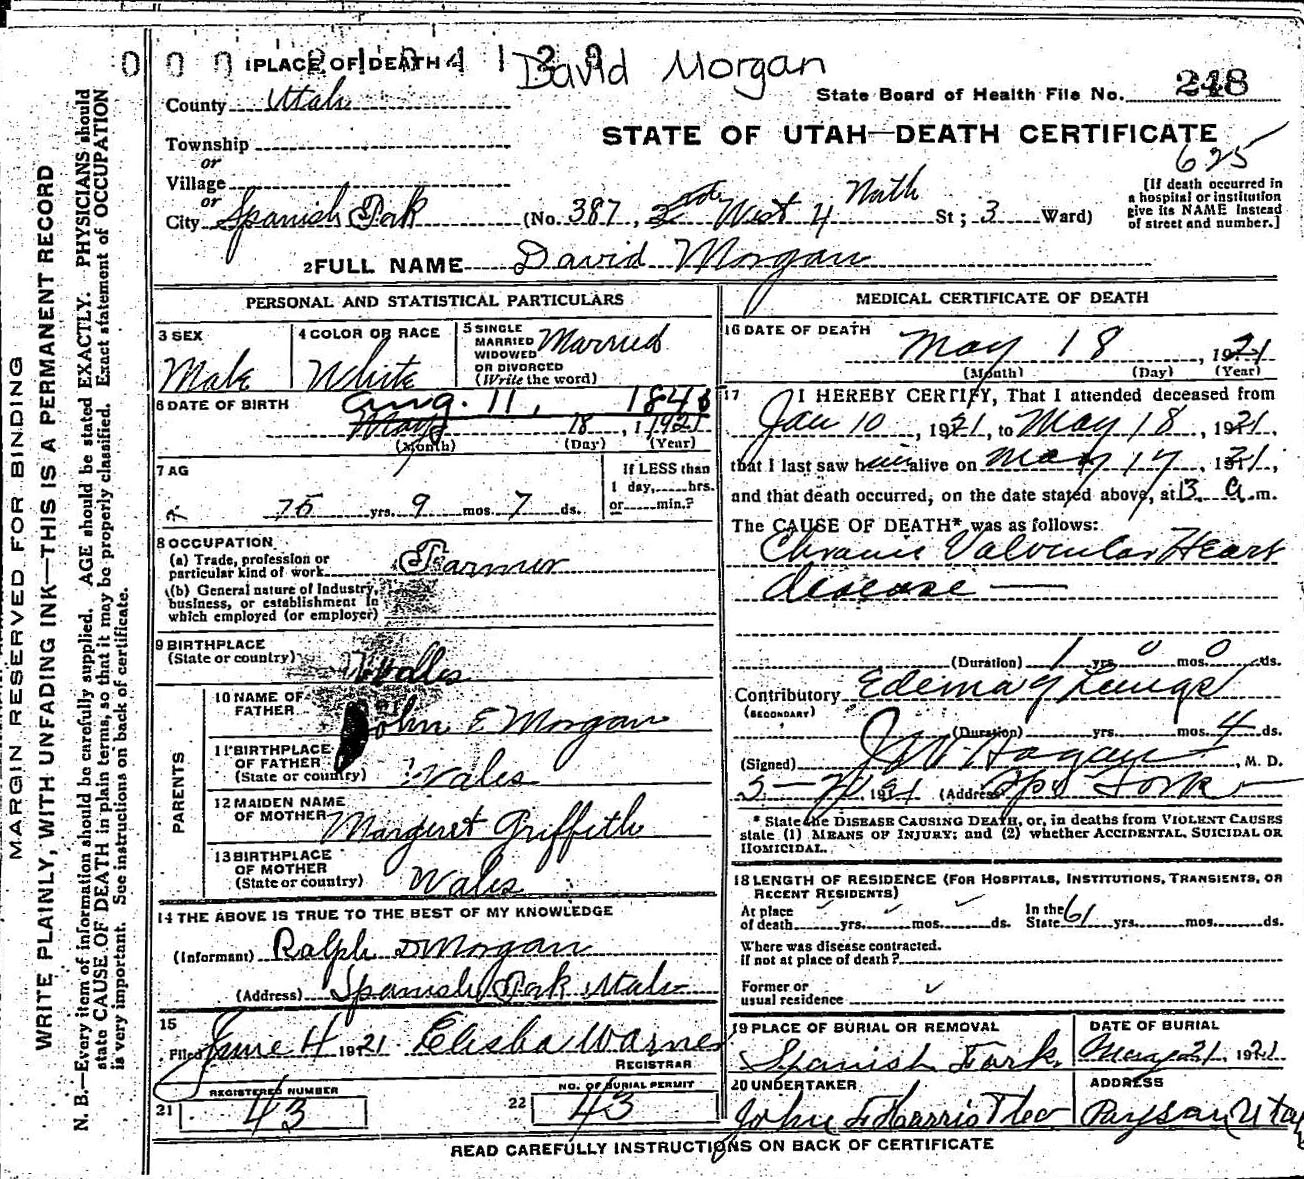 1 PLACE OF DEATH David Morgan
County Utah
State Board of Health File No. 248
Township
STATE OF UTAH—DEATH CERTIFICATE
625
or
Village
or
City Spanish Fork (No. 387, West 4 North St; 3 Ward)
[If death occurred in
a hospital or institution
give its NAME instead
of street and number.]
2 FULL NAME David Morgan
MARGIN RESERVED FOR BINDING
WRITE PLAINLY, WITH UNFADING INK—THIS IS A PERMANENT RECORD
N. B.—Every item of information should be carefully supplied. AGE should be stated EXACTLY. PHYSICIANS should
state CAUSE OF DEATH in plain terms, so that it may be properly classified. Exact statement of OCCUPATION
is very important. See instructions on back of certificate.
PERSONAL AND STATISTICAL PARTICULARS
3 SEX
Male
4 COLOR OR RACE
White
5 SINGLE
MARRIED
WIDOWED
OR DIVORCED
(Write the word)
Married
6 DATE OF BIRTH
Aug. 11, 184
May 18, 1921
(Month) (Day) (Year)
7 AG
75 yrs. 9 mos. 7 ds.
If LESS than
1 day, hrs.
or min.?
8 OCCUPATION
(a) Trade, profession or
particular kind of work Farmer
(b) General nature of Industry,
business, or establishment in
which employed (or employer)
9 BIRTHPLACE
(State or country) Wales
PARENTS
10 NAME OF
FATHER John E Morgan
11 BIRTHPLACE
OF FATHER
(State or country) Wales
12 MAIDEN NAME
OF MOTHER Margaret Griffith
13 BIRTHPLACE
OF MOTHER
(State or country) Wales
14 THE ABOVE IS TRUE TO THE BEST OF MY KNOWLEDGE
(Informant) Ralph D Morgan
(Address) Spanish Fork Utah
15
Filed June 4 1921 Elisha Warner
REGISTRAR
REGISTERED NUMBER
21 43
NO. OF BURIAL PERMIT
22 43
MEDICAL CERTIFICATE OF DEATH
16 DATE OF DEATH
May 18, 1921
(Month) (Day) (Year)
17 I HEREBY CERTIFY, That I attended deceased from
Jan 10, 1921, to May 18, 1921,
that I last saw him alive on May 17, 1921,
and that death occurred, on the date stated above, at 3 a.m.
The CAUSE OF DEATH* was as follows:
Chronic Valvular Heart
disease —
(Duration) 1 yrs. 0 mos. 0 ds.
Contributory Edema of Lungs
(SECONDARY)
(Duration) yrs. mos. 4 ds.
(Signed) J W Hagan, M. D.
(Address) Spa Fork
* State the DISEASE CAUSING DEATH, or, in deaths from VIOLENT CAUSES
state (1) MEANS OF INJURY; and (2) whether ACCIDENTAL, SUICIDAL OR
HOMICIDAL.
18 LENGTH OF RESIDENCE (FOR HOSPITALS, INSTITUTIONS, TRANSIENTS, OR
RECENT RESIDENTS)
At place
of death yrs. mos. ds.
In the
State 61 yrs. mos. ds.
Where was disease contracted.
if not at place of death?
Former or
usual residence
19 PLACE OF BURIAL OR REMOVAL
Spanish Fork
DATE OF BURIAL
May 21, 1921
20 UNDERTAKER
John F Harris
ADDRESS
Payson Utah
READ CAREFULLY INSTRUCTIONS ON BACK OF CERTIFICATE